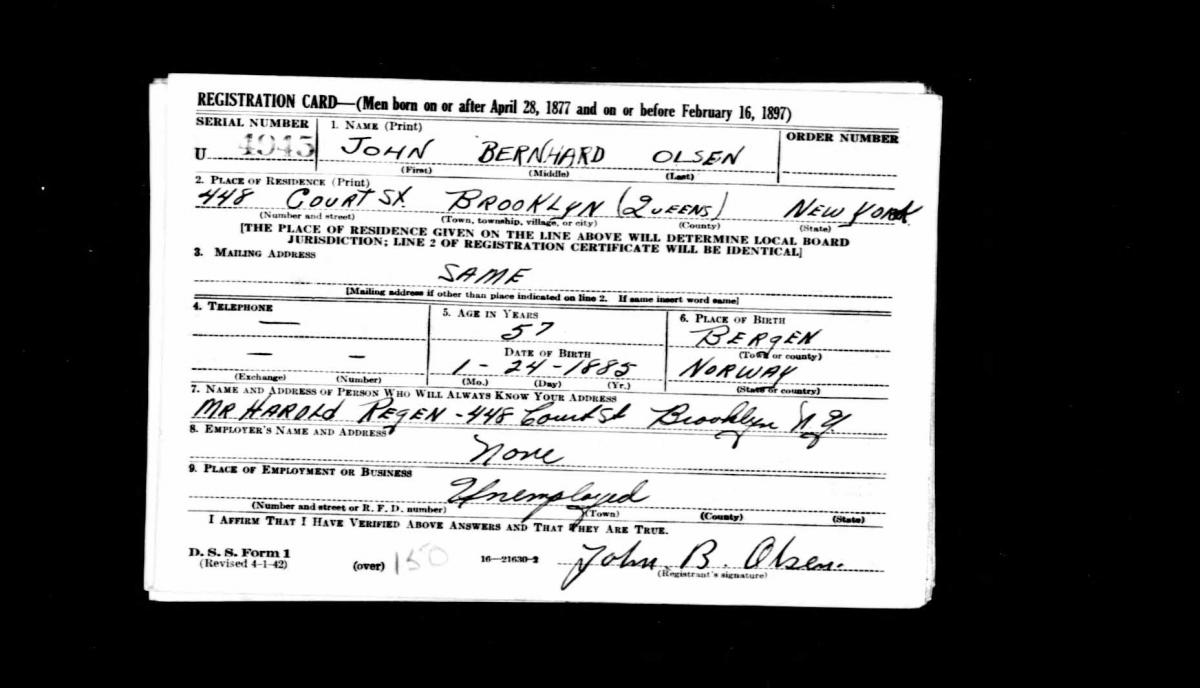 REGISTRATION CARD—(Men born on or after April 28, 1877 and on or before February 16, 1897)
SERIAL NUMBER 1. NAME (Print) ORDER NUMBER
U 4045 JOHN BERNHARD OLSEN
(First) (Middle) (Last)
2. PLACE OF RESIDENCE (Print)
448 COURT ST. BROOKLYN (QUEENS) NEW YORK
(Number and street) (Town, township, village, or city) (County) (State)
[THE PLACE OF RESIDENCE GIVEN ON THE LINE ABOVE WILL DETERMINE LOCAL BOARD
JURISDICTION; LINE 2 OF REGISTRATION CERTIFICATE WILL BE IDENTICAL]
3. MAILING ADDRESS
SAME
[Mailing address if other than place indicated on line 2. If same insert word same]
4. TELEPHONE 5. AGE IN YEARS 6. PLACE OF BIRTH
— 57 BERGEN
DATE OF BIRTH (Town or county)
— — 1-24-1885 NORWAY
(Exchange) (Number) (Mo.) (Day) (Yr.) (State or country)
7. NAME AND ADDRESS OF PERSON WHO WILL ALWAYS KNOW YOUR ADDRESS
MR HAROLD REGEN - 448 Court St Brooklyn N.Y.
8. EMPLOYER'S NAME AND ADDRESS
None
9. PLACE OF EMPLOYMENT OR BUSINESS
Unemployed
(Number and street or R. F. D. number) (Town) (County) (State)
I AFFIRM THAT I HAVE VERIFIED ABOVE ANSWERS AND THAT THEY ARE TRUE.
D. S. S. Form 1
(Revised 4-1-42) (over) 150 16—21630-2 John B. Olsen.
(Registrant's signature)